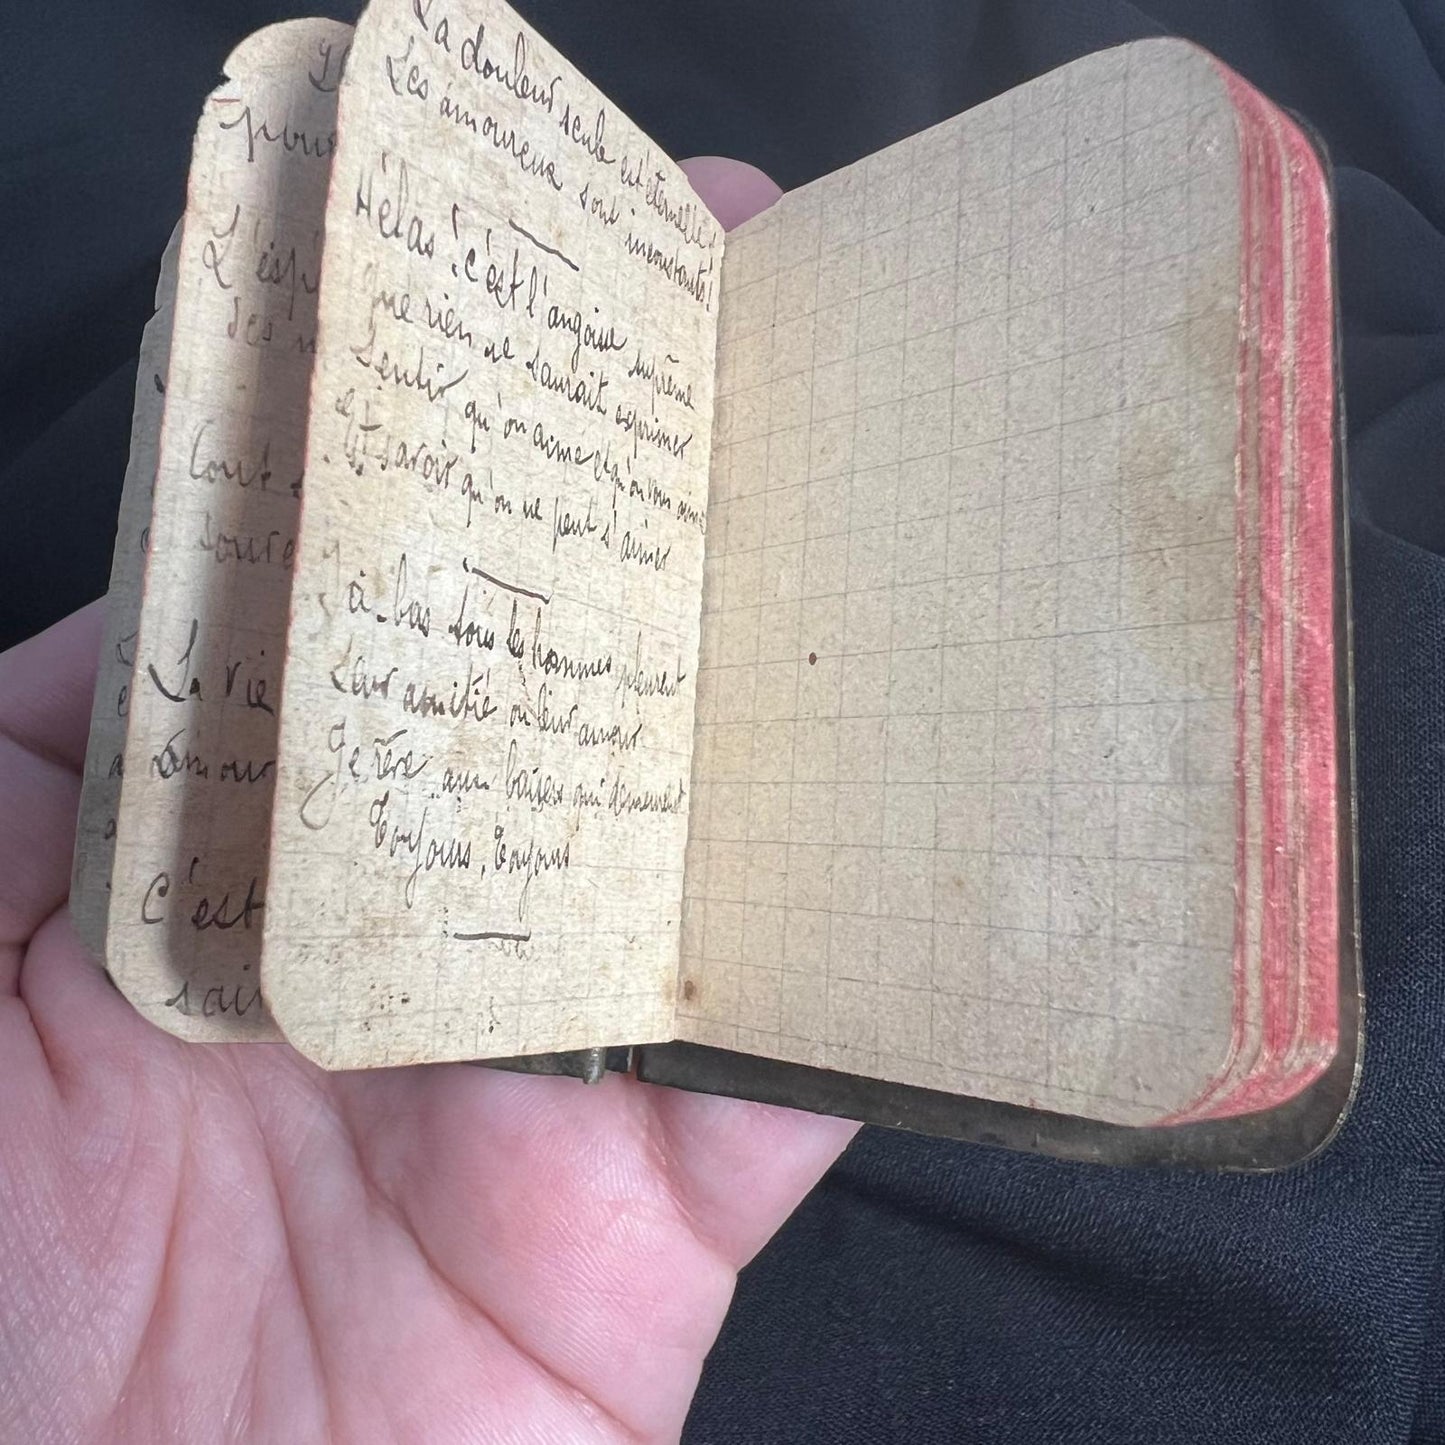 La douleur seule est éternelle!
Les amoureux sont inconstants!
Hélas! c'est l'angoisse suprême
que rien ne saurait exprimer
Sentir qu'on aime et qu'on vous aime
Et savoir qu'on ne peut s'aimer
à-bas tous les hommes pleurent
Leur amitié ou leur amour
Je rêve aux baisers qui demeurent
Toujours, Toujours
pour
L'espé
des
tout
toure
La vie
amour
C'est
sai